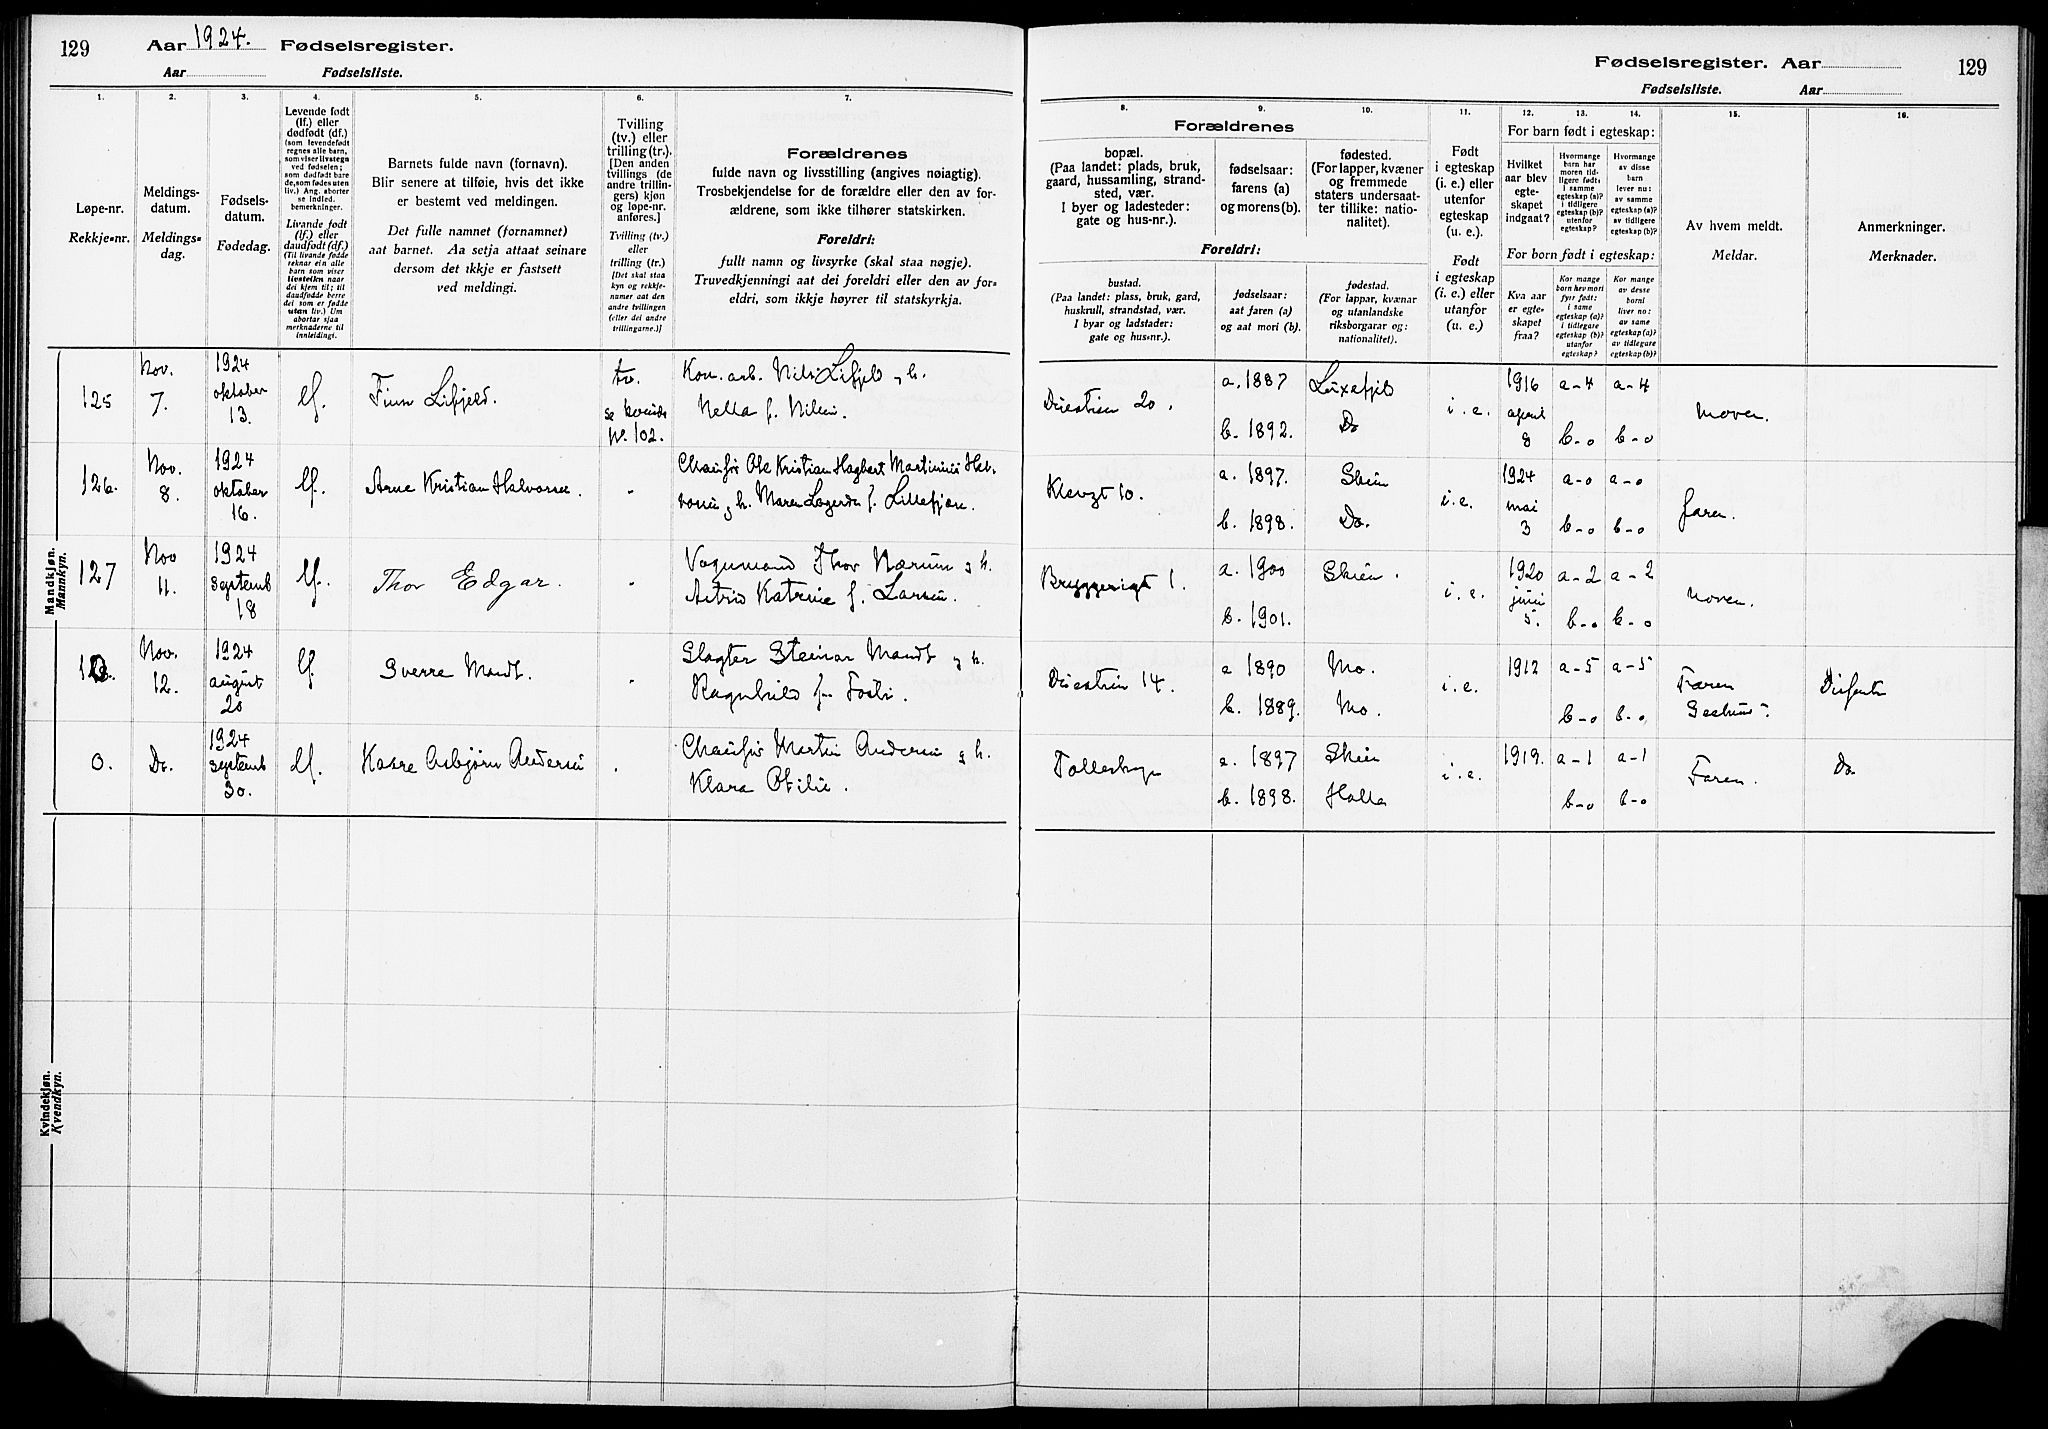 129
Aar 1924. Fødselsregister.
Aar Fødselsliste.
Fødselsregister. Aar
129
Fødselsliste. Aar
1.
2.
3.
4.
5.
6.
7.
8.
9.
10.
11.
12.
13.
14.
15.
16.
Løpe-nr.
Rekkje-nr.
Meldings-
datum.
Meldings-
dag.
Fødsels-
datum.
Fødedag.
Levende født
(lf.) eller
dødfødt (df.)
(som levendefødt
regnes alle barn,
som viser livstegn
ved fødselen;
som dødfødt bare
de, som fødes uten
liv.) Ang. aborter
se indled.
bemerkninger.
Livande født
(lf.) eller
daudfødt (df.)
(Til livande fødde
reknar ein alle
barn som viser
livsteikn naar
dei kjem til; til
daudfødde berre
dei som er fødde
utan liv.) Um
abortar sjaa
merknaderne til
innleidingi.
Barnets fulde navn (fornavn).
Blir senere at tilføie, hvis det ikke
er bestemt ved meldingen.
Det fulle namnet (fornamnet)
aat barnet. Aa setja attaat seinare
dersom det ikkje er fastsett
ved meldingi.
Tvilling
(tv.) eller
trilling (tr.).
[Den anden
tvillings (de
andre trillin-
gers) kjøn
og løpe-nr.
anføres.]
Tvilling (tv.)
eller
trilling (tr.)
[Det skal staa
kyn og rekkje-
numer aat den
andre tvillingen
(eller dei andre
trillingarne.)]
Forældrenes
fulde navn og livsstilling (angives nøiagtig).
Trosbekjendelse for de forældre eller den av for-
ældrene, som ikke tilhører statskirken.
Foreldri:
fullt namn og livsyrke (skal staa nøgje).
Truvedkjenningi aat dei foreldri eller den av for-
eldri, som ikkje høyrer til statskyrkja.
Forældrenes
bopæl.
(Paa landet: plads, bruk,
gaard, hussamling, strand-
sted, vær.
I byer og ladesteder:
gate og hus-nr.).
fødselsaar:
farens (a)
og morens (b).
fødested.
(For lapper, kvæner
og fremmede
staters undersaat-
ter tillike: natio-
nalitet).
Foreldri:
bustad.
(Paa landet: plass, bruk, gard,
huskrull, strandstad, vær.
I byar og ladstader:
gate og hus-nr.).
fødselsaar:
aat faren (a)
og aat mori (b).
fødestad.
(For lappar, kvænar
og utanlandske
riksborgarar og:
nationalitet).
Født
i egteskap
(i. e.) eller
utenfor
egteskap
(u. e.).
Født
i egteskap
(i. e.) eller
utanfor
(u. e.)
For barn født i egteskap:
Hvilket
aar blev
egte-
skapet
indgaat?
Hvormange
barn har
moren tid-
ligere født:
i samme
egteskap (a)?
i tidligere
egteskap (b)?
utenfor
egteskap?
Hvormange
av disse
barn
lever nu:
av samme
egteskap (a)?
av tidligere
egteskap (b)?
For born født i egteskap:
Kva aar
er egte-
skapet
fraa?
Kor mange
born hev mori
fyrr født:
i same
egteskap (a)?
i tidlegare
egteskap (b)?
utanfor
egteskap?
Kor mange
av desse
borni
liver no:
av same
egteskap (a)?
av tidlegare
egteskap (b)?
Av hvem meldt.
Meldar.
Anmerkninger.
Merknader.
Mandkjøn.
Mannkyn.
125
Nov.
7.
1924
oktober
13.
lf.
Finn Lifjeld.
tv.
se kvinde
No. 102.
Kon. arb. Nils Lifjeld g. h.
Nella f. Nilsen.
20.
a. 1887
b. 1892.
Luxefjeld
Do
i. e.
1916
april
8
a-4
b-0
a-4
b-0
Moren.
126.
Nov.
8.
1924
oktober
16.
lf.
Arne Kristian Halvorsen.
"
Chaufør Ole Kristian Hagbert Martinius Hal-
vorsen g. h. Maren Lagerda f. Lillefjære.
Klevgt 10.
a. 1897.
b. 1898.
Skien
Do.
i. e.
1924
mai
3
a-0
b-0
a-0
b-0
faren.
127
Nov
11.
1924
septemb
18
lf.
Thor Edgar.
"
Vognmand Thor Nærum g. h.
Astrid Katrine f. Larsen.
Bryggerigt 1.
a. 1900
b. 1901.
Skien.
i. e.
1920
juni
5.
a-2
b-0
a-2
b-0
Moren.
Nov.
12.
1924
august
20
lf.
Sverre Mandt.
"
Slagter Steinar Mandt g. h.
Ragnhild f.
14.
a 1890
b. 1889.
Mo.
Mo.
i. e.
1912
a-5
b-0
a-5
b-0
Faren
0.
Do.
1924
septemb
30.
lf.
Kaare Asbjørn Andersen
.
Chaufør Martin Andersen g. h.
Klara Otilie.
a. 1897
b. 1898.
Skien
Holla
i. e.
1919.
a-1
b-0
a-1
b-0
Faren.
Do
Kvindekjøn.
Kvendkyn.